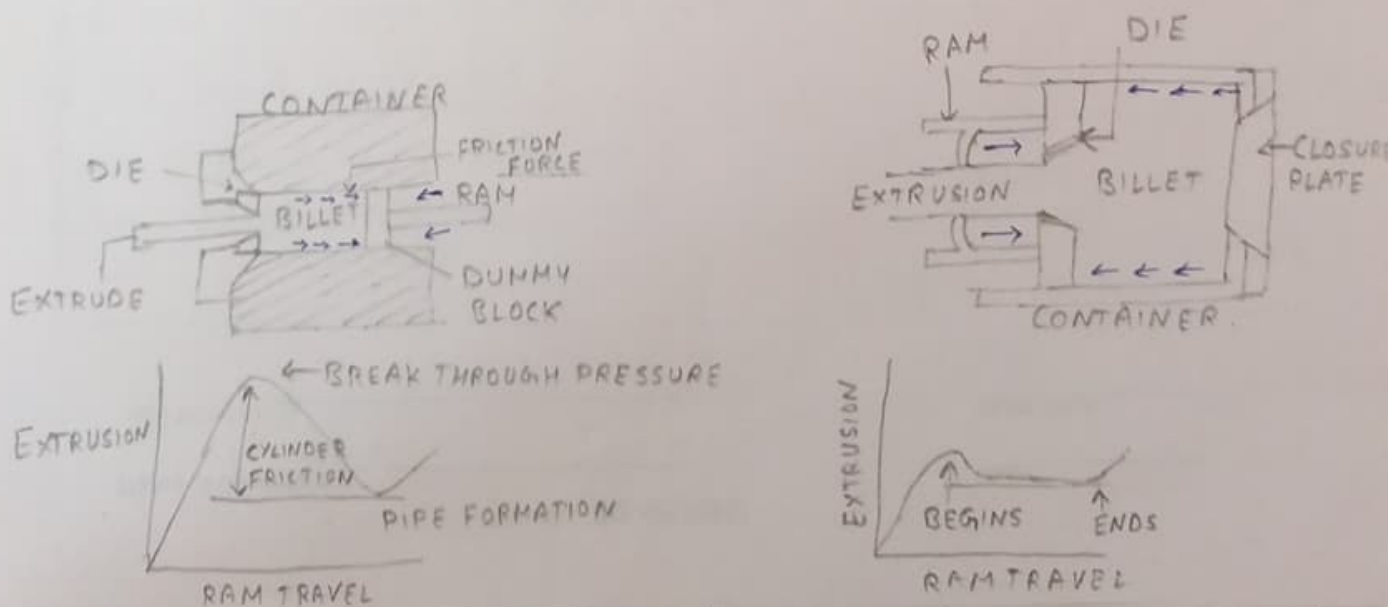 CONTAINER
DIE
FRICTION
FORCE
BILLET
RAM
EXTRUDE
DUMMY
BLOCK
BREAK THROUGH PRESSURE
EXTRUSION
CYLINDER
FRICTION
PIPE FORMATION
RAM TRAVEL
DIE
RAM
CLOSURE
PLATE
BILLET
EXTRUSION
CONTAINER.
EXTRUSION
BEGINS
ENDS
RAM TRAVEL